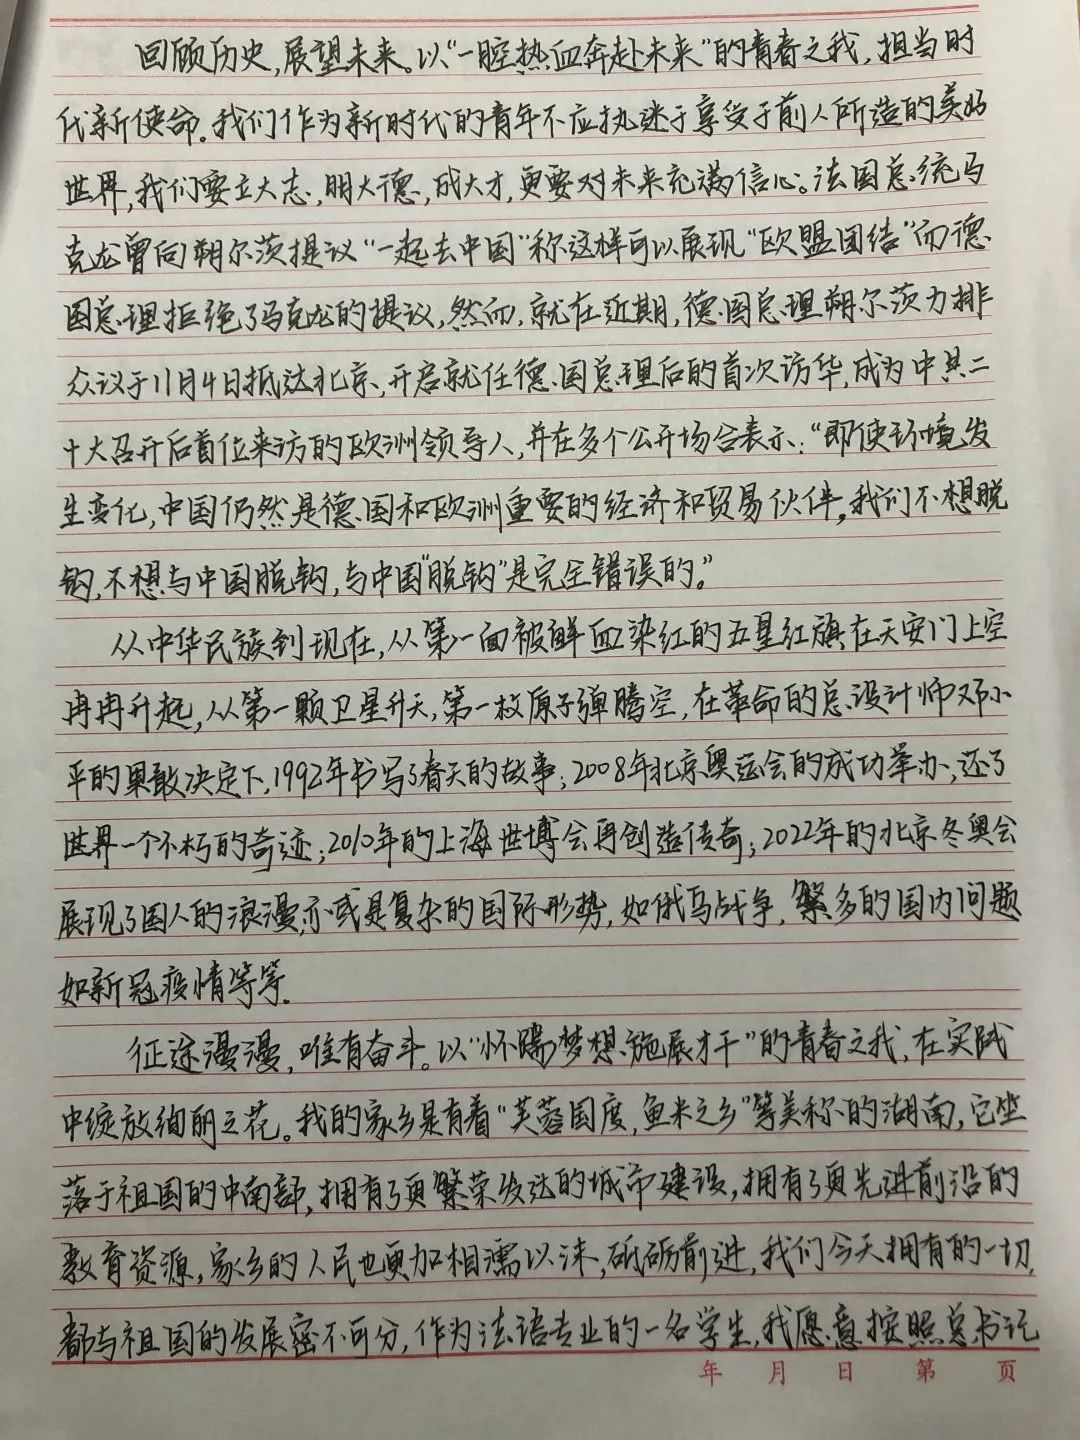 回顾历史,展望未来。以“一腔热血奔赴未来”的青春之我,担当时
代新使命。我们作为新时代的青年不应执迷于享受于前人所造的美好
世界,我们要立大志、明大德、成大才,更要对未来充满信心。法国总统马
克龙曾向朔尔茨提议“一起去中国”称这样可以展现“欧盟团结”而德
国总理拒绝了马克龙的提议,然而,就在近期,德国总理朔尔茨力排
众议于11月4日抵达北京、开启就任德国总理后的首次访华,成为中共二
十大召开后首位来访的欧洲领导人,并在多个公开场合表示:“即使环境发
生变化,中国仍然是德国和欧洲重要的经济和贸易伙伴,我们不想脱
钩,不想与中国脱钩,与中国“脱钩”是完全错误的。”
从中华民族到现在,从第一面被鲜血染红的五星红旗在天安门上空
冉冉升起,从第一颗卫星升天,第一枚原子弹腾空,在革命的总设计师邓小
平的果敢决定下,1992年书写了春天的故事;2008年北京奥运会的成功举办,还了
世界一个不朽的奇迹;2010年的上海世博会再创造传奇;2022年的北京冬奥会
展现了国人的浪漫,亦或是复杂的国际形势,如俄乌战争,繁多的国内问题
如新冠疫情等等.
征途漫漫,唯有奋斗。以“怀揣梦想、施展才干”的青春之我,在实践
中绽放绚丽之花。我的家乡是有着“芙蓉国度,鱼米之乡”等美称的湖南,它坐
落于祖国的中南部,拥有了更繁荣发达的城市建设,拥有了更先进前沿的
教育资源,家乡的人民也更加相濡以沫,砥砺前进,我们今天拥有的一切,
都与祖国的发展密不可分,作为法语专业的一名学生,我愿意按照总书记
年 月 日 第 页